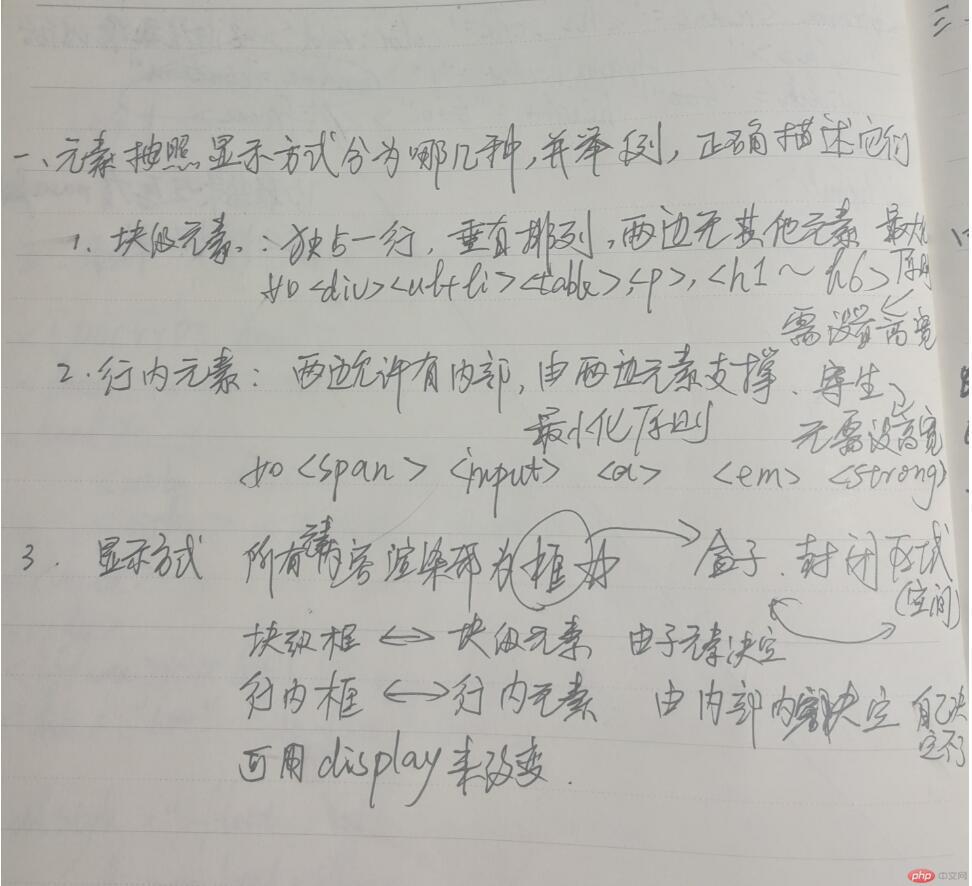 三
一、元素按照显示方式分为哪几种,并举例,正确描述它们
1. 块级元素：独占一行，垂直排列，两边无其他元素 最大化原则
如<div><ul+li><table>,<p>,<h1~h6>
需设置高宽
2. 行内元素： 两边允许有内部，由两边元素支撑、寄生
最小化原则 无需设高宽
如<span> <input> <a> <em> <strong>
3. 显示方式 所有元素内容渲染都为框 盒子、封闭区域
(空间)
块级框 <-> 块级元素 由子元素决定
行内框 <-> 行内元素 由内部内容决定 自己决定不了
可用display来改变.
php 中文网